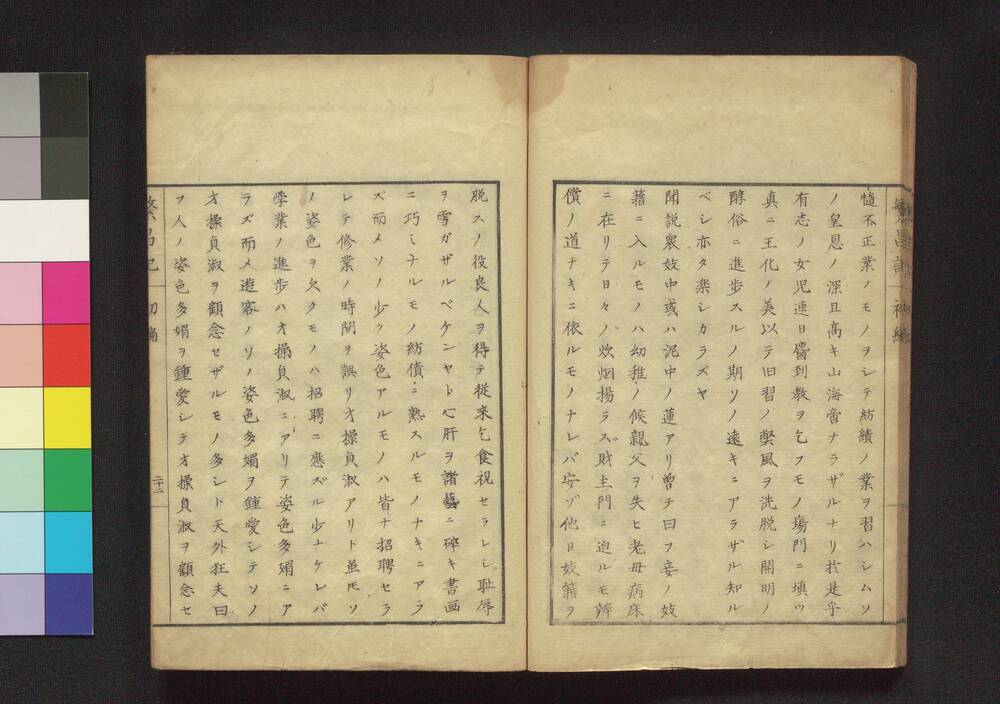 慥不正業ノモノヲシテ紡績ノ業ヲ習ハシムソ
ノ皇恩ノ深且高キ山海啻ナラザルナリ於是乎
有志ノ女児連日麕到教ヲ乞フモノ場門ニ填ツ
真ニ王化ノ美以テ旧習ノ弊風ヲ洗脱シ開明ノ
醇俗ニ進歩スルノ期ソノ遠キニアラザル知ル
ベシ亦タ楽シカラズヤ
聞説衆妓中或ハ泥中ノ蓮アリ曽テ曰フ妾ノ妓
籍ニ入ルモノハ幼稚ノ候親父ヲ失ヒ老母病床
ニ在リテ日々ノ炊烟揚ラズ財主門ニ迫ルモ辨
償ノ道ナキニ依ルモノナレバ安ゾ他日妓籍ヲ
脱スノ役良人ヲ得テ従来乞食視セラレシ耻辱
ヲ雪ガザルベケンヤト心肝ヲ諸藝ニ碎キ書画
ニ巧ミナルモノ紡債ニ熟スルモノナキニアラ
ズ而メソノ少ク姿色アルモノハ皆ナ招聘セラ
レテ修業ノ時間ヲ誤リ才操貞淑アリト虽𪜈ソ
ノ姿色ヲ欠クモノハ招聘ニ應ズル少ナケレバ
學業ノ進歩ハ才操貞淑ニアリテ姿色多媚ニア
ラズ而メ遊客ノソノ姿色多媚ヲ鍾愛シテソノ
才操貞淑ヲ顧念セザルモノ多シト天外狂夫曰
フ人ノ姿色多媚ヲ鍾愛シテ才操貞淑ヲ顧念セ
繁昌記 初編 二十二